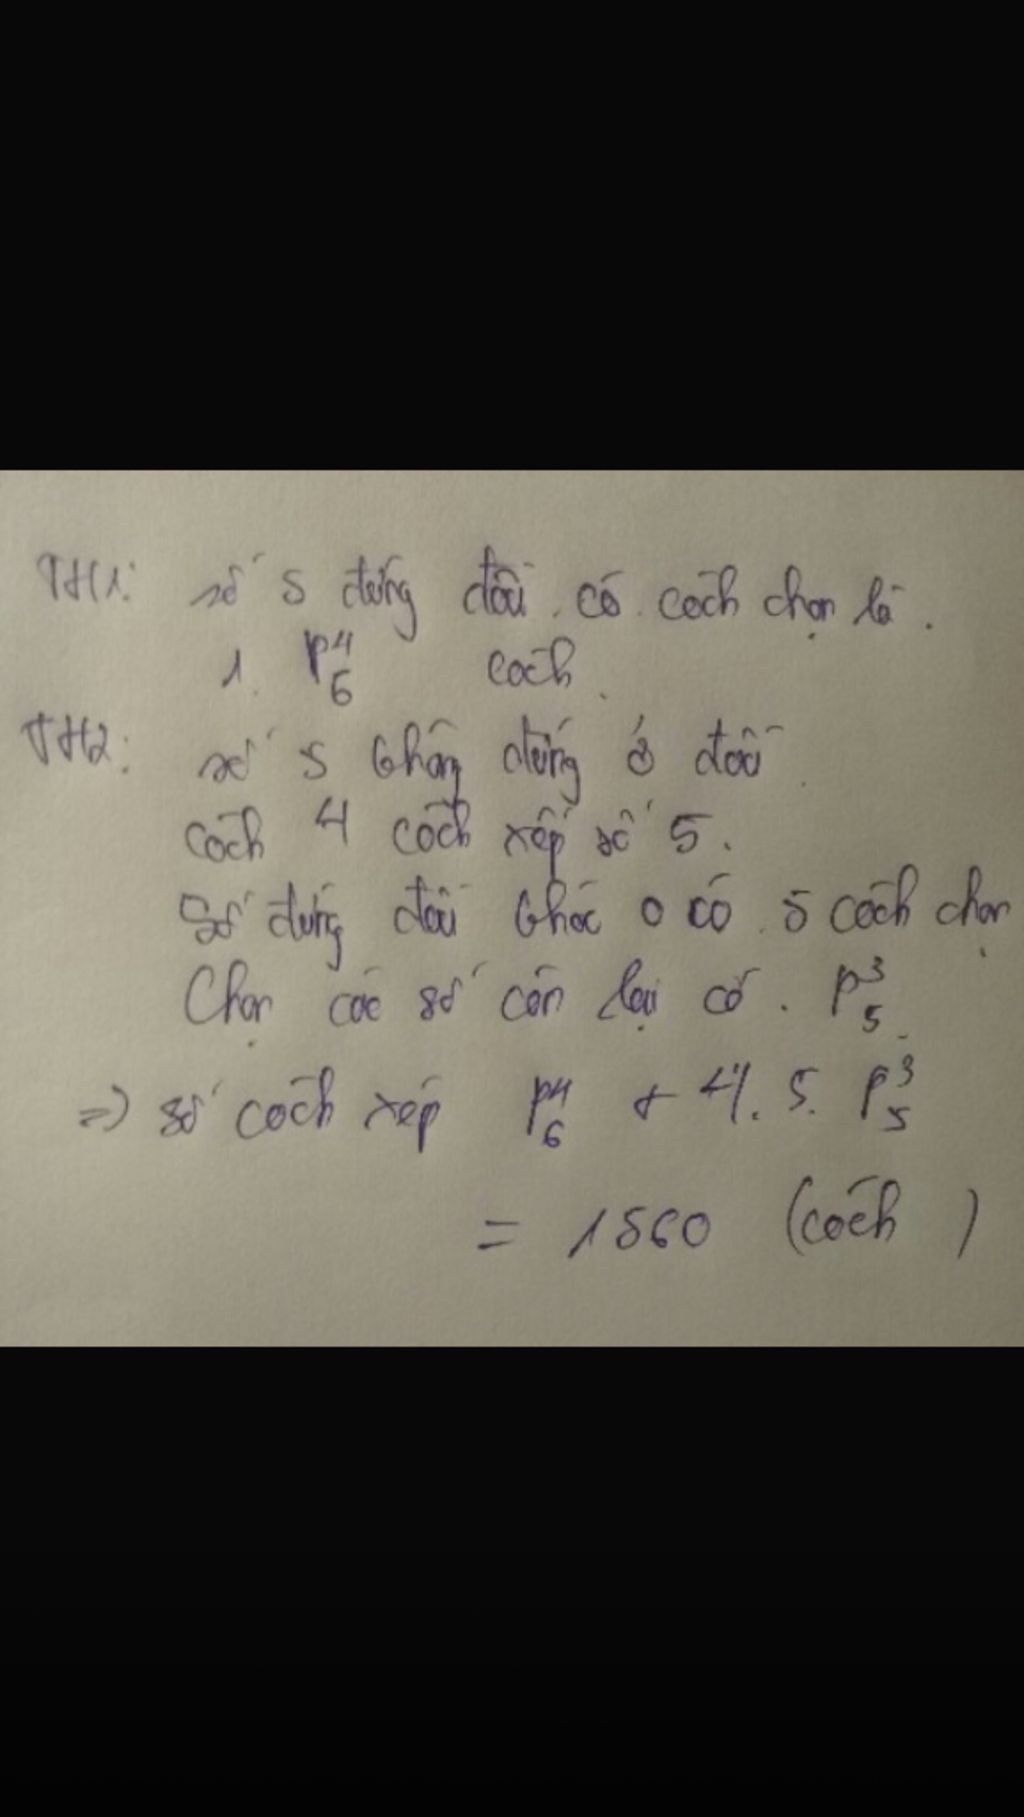 TH1: số 5 đứng đầu có cách chọn là.
1. P⁴₆ cách.
TH2: số 5 không đứng ở đầu
cách 4 cách xếp số 5.
Số đứng đầu khác 0 có 5 cách chọn
Chọn các số còn lại có. P³₅.
=> số cách xếp P⁴₆ + 4. 5. P³₅
= 1560 (cách)